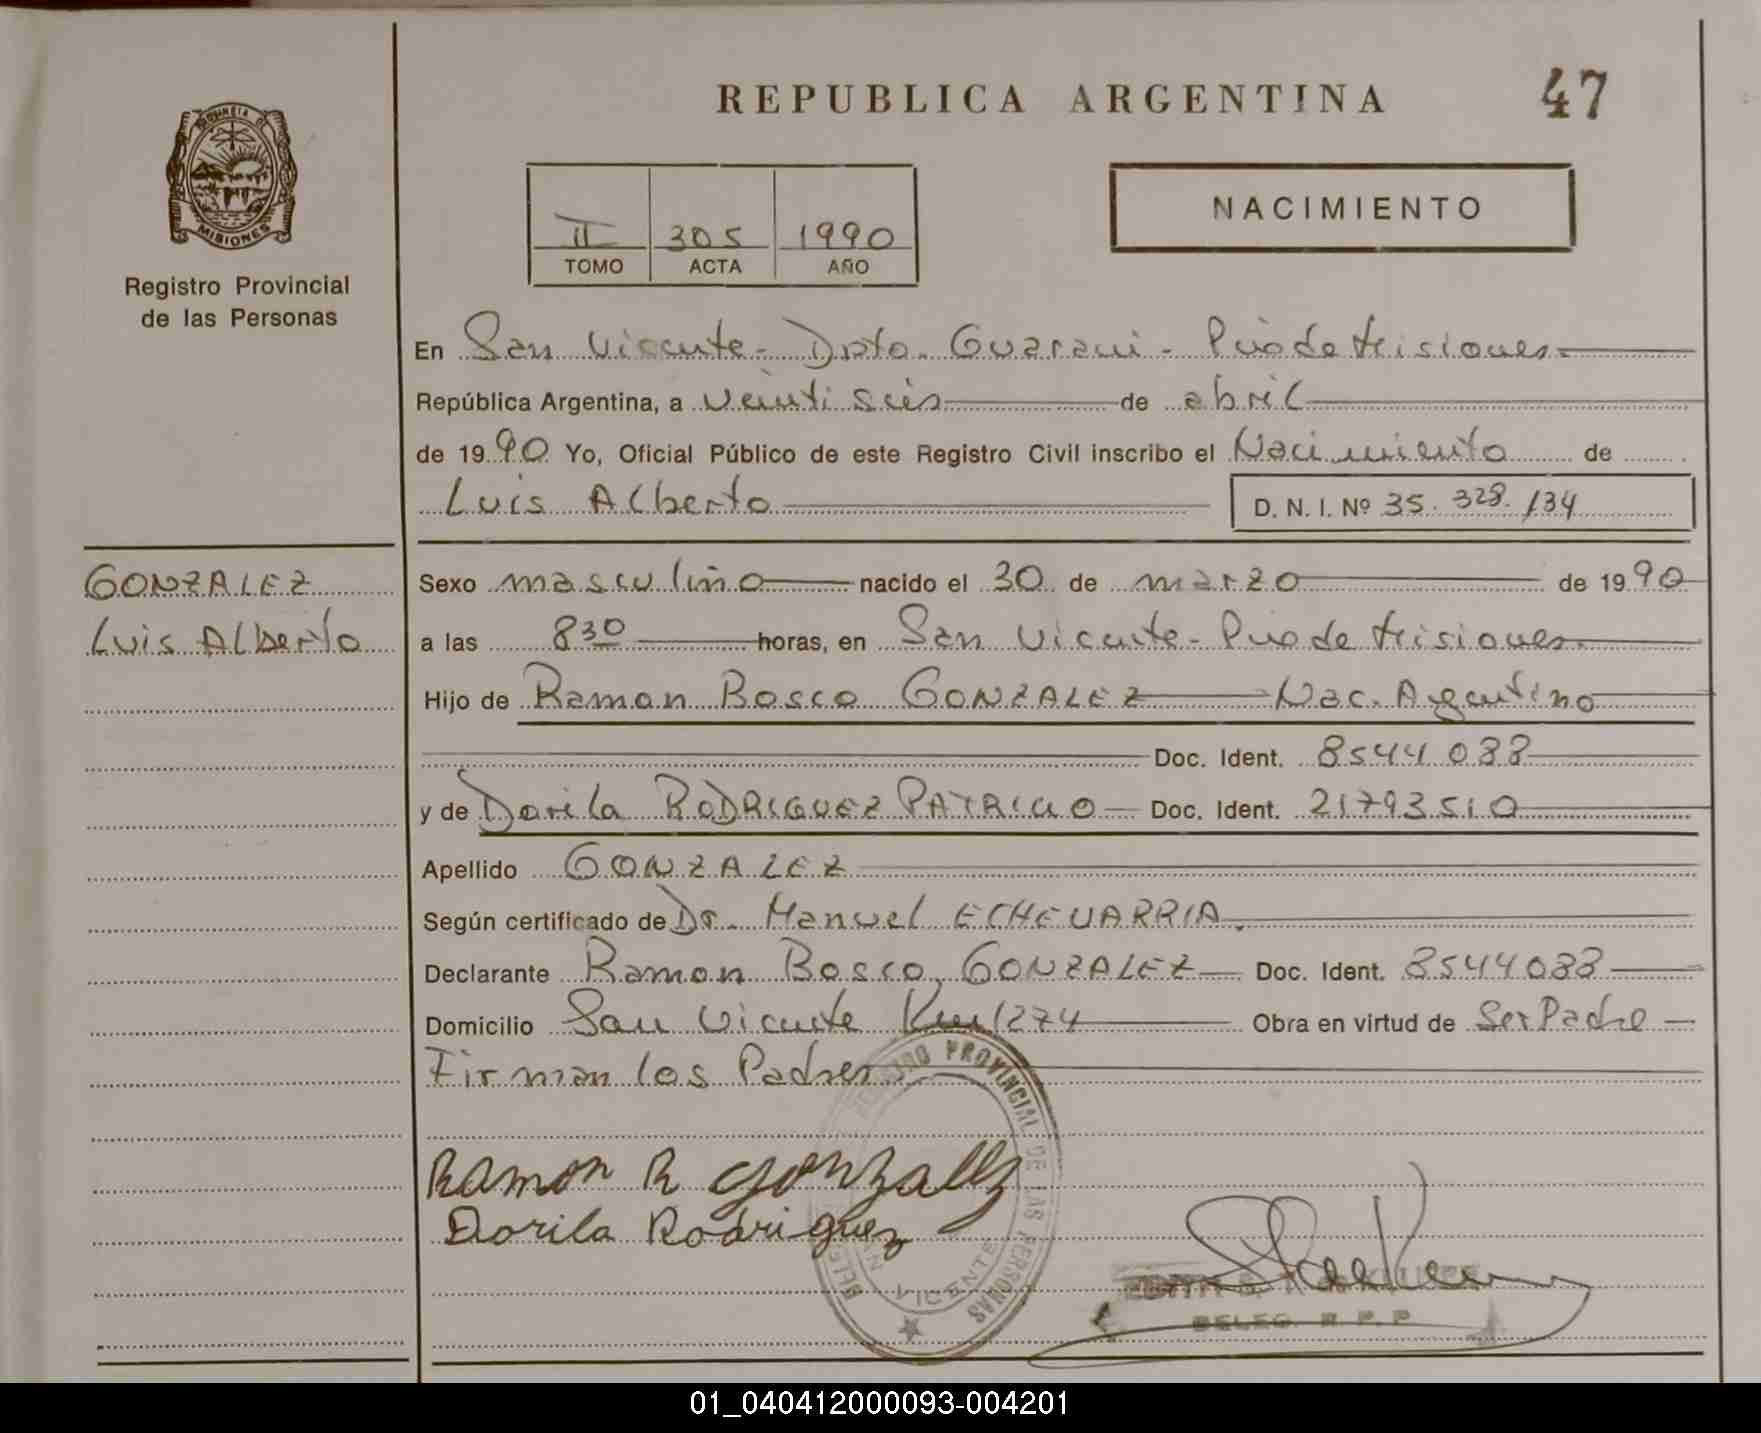 REPUBLICA ARGENTINA
47
PROVINCIA DE
MISIONES
Registro Provincial
de las Personas
II 305 1990
TOMO ACTA AÑO
NACIMIENTO
En San Vicente - Dpto. Guarani - Pcia de Misiones
República Argentina, a veinti seis de abril
de 1990 Yo, Oficial Público de este Registro Civil inscribo el Nacimiento de
Luis Alberto D. N. I. Nº 35.328.134
GONZALEZ
Luis Alberto
Sexo masculino nacido el 30 de marzo de 1990
a las 8 30 horas, en San Vicente - Pcia de Misiones
Hijo de Ramon Bosco GONZALEZ Nac. Argentino
Doc. Ident. 8544 088
y de Dorila RODRIGUEZ PATRICIO Doc. Ident. 21793510
Apellido GONZALEZ
Según certificado de Dr. Manuel ECHEVARRIA
Declarante Ramon Bosco GONZALEZ Doc. Ident. 8544088
Domicilio San Vicente Km 1274 Obra en virtud de Ser Padre
Firman los Padres
Ramon R gonzalez
Dorila Rodriguez
REGISTRO PROVINCIAL DE LAS PERSONAS
VICENTE
DELEG. R.P.P.
01_040412000093-004201